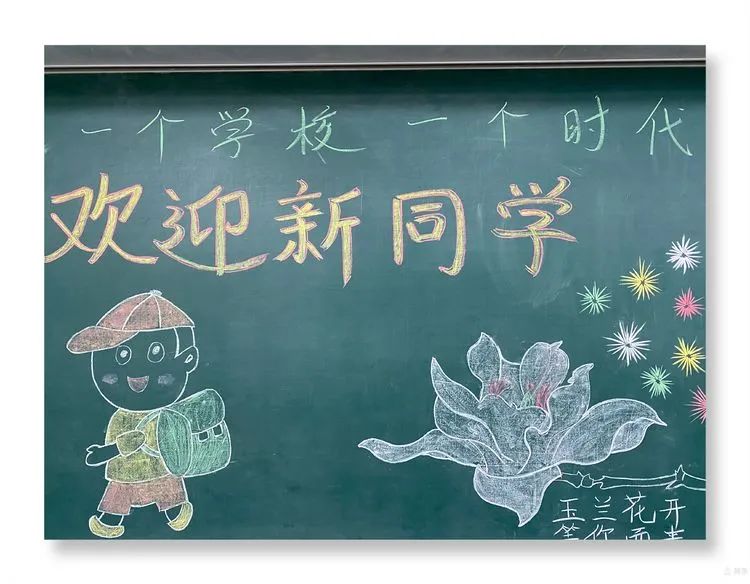 一个学校 一个时代
欢迎新同学
玉兰花开
等你而来